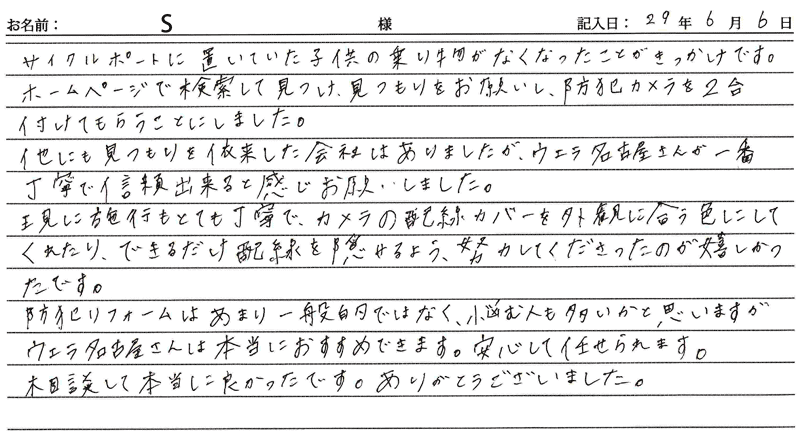 お名前: S 様 記入日: 29年 6月 6日
サイクルポートに置いていた子供の乗り物がなくなったことがきっかけです。
ホームページで検索して見つけ、見つもりをお願いし、防犯カメラを2台
付けてもらうことにしました。
他にも見つもりを依来した会社はありましたが、ウェラ名古屋さんが一番
丁寧で信頼出来ると感じお願いしました。
現に施行もとても丁寧で、カメラの配線カバーを外観に合う色にして
くれたり、できるだけ配線を隠せるよう、努力してくださったのが嬉しかっ
たです。
防犯リフォームはあまり一般的ではなく、悩む人も多いかと思いますが
ウェラ名古屋さんは本当におすすめできます。安心して任せられます。
相談して本当に良かったです。ありがとうございました。